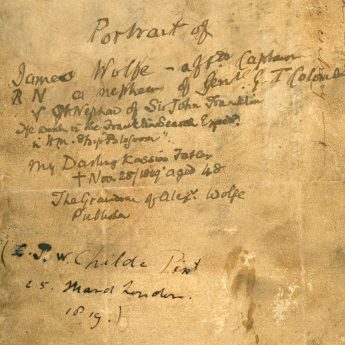 Portrait of
James Wolfe - aftd Captain
R N a nephew of Genl. G T Colomb
& Gt Nephew of Sir John Franklin
He went in the Franklin Search Exped.
in H.M. Ship Blossom".
My Darling Father
† Nov. 28/1849 aged 48
The Grandson of Alexr. Wolfe
(E. J. W. Childe Pinxt
25. Strand London.
1819.)